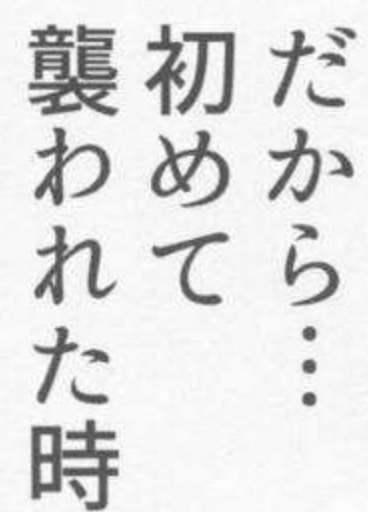 だから…
初めて
襲われた時